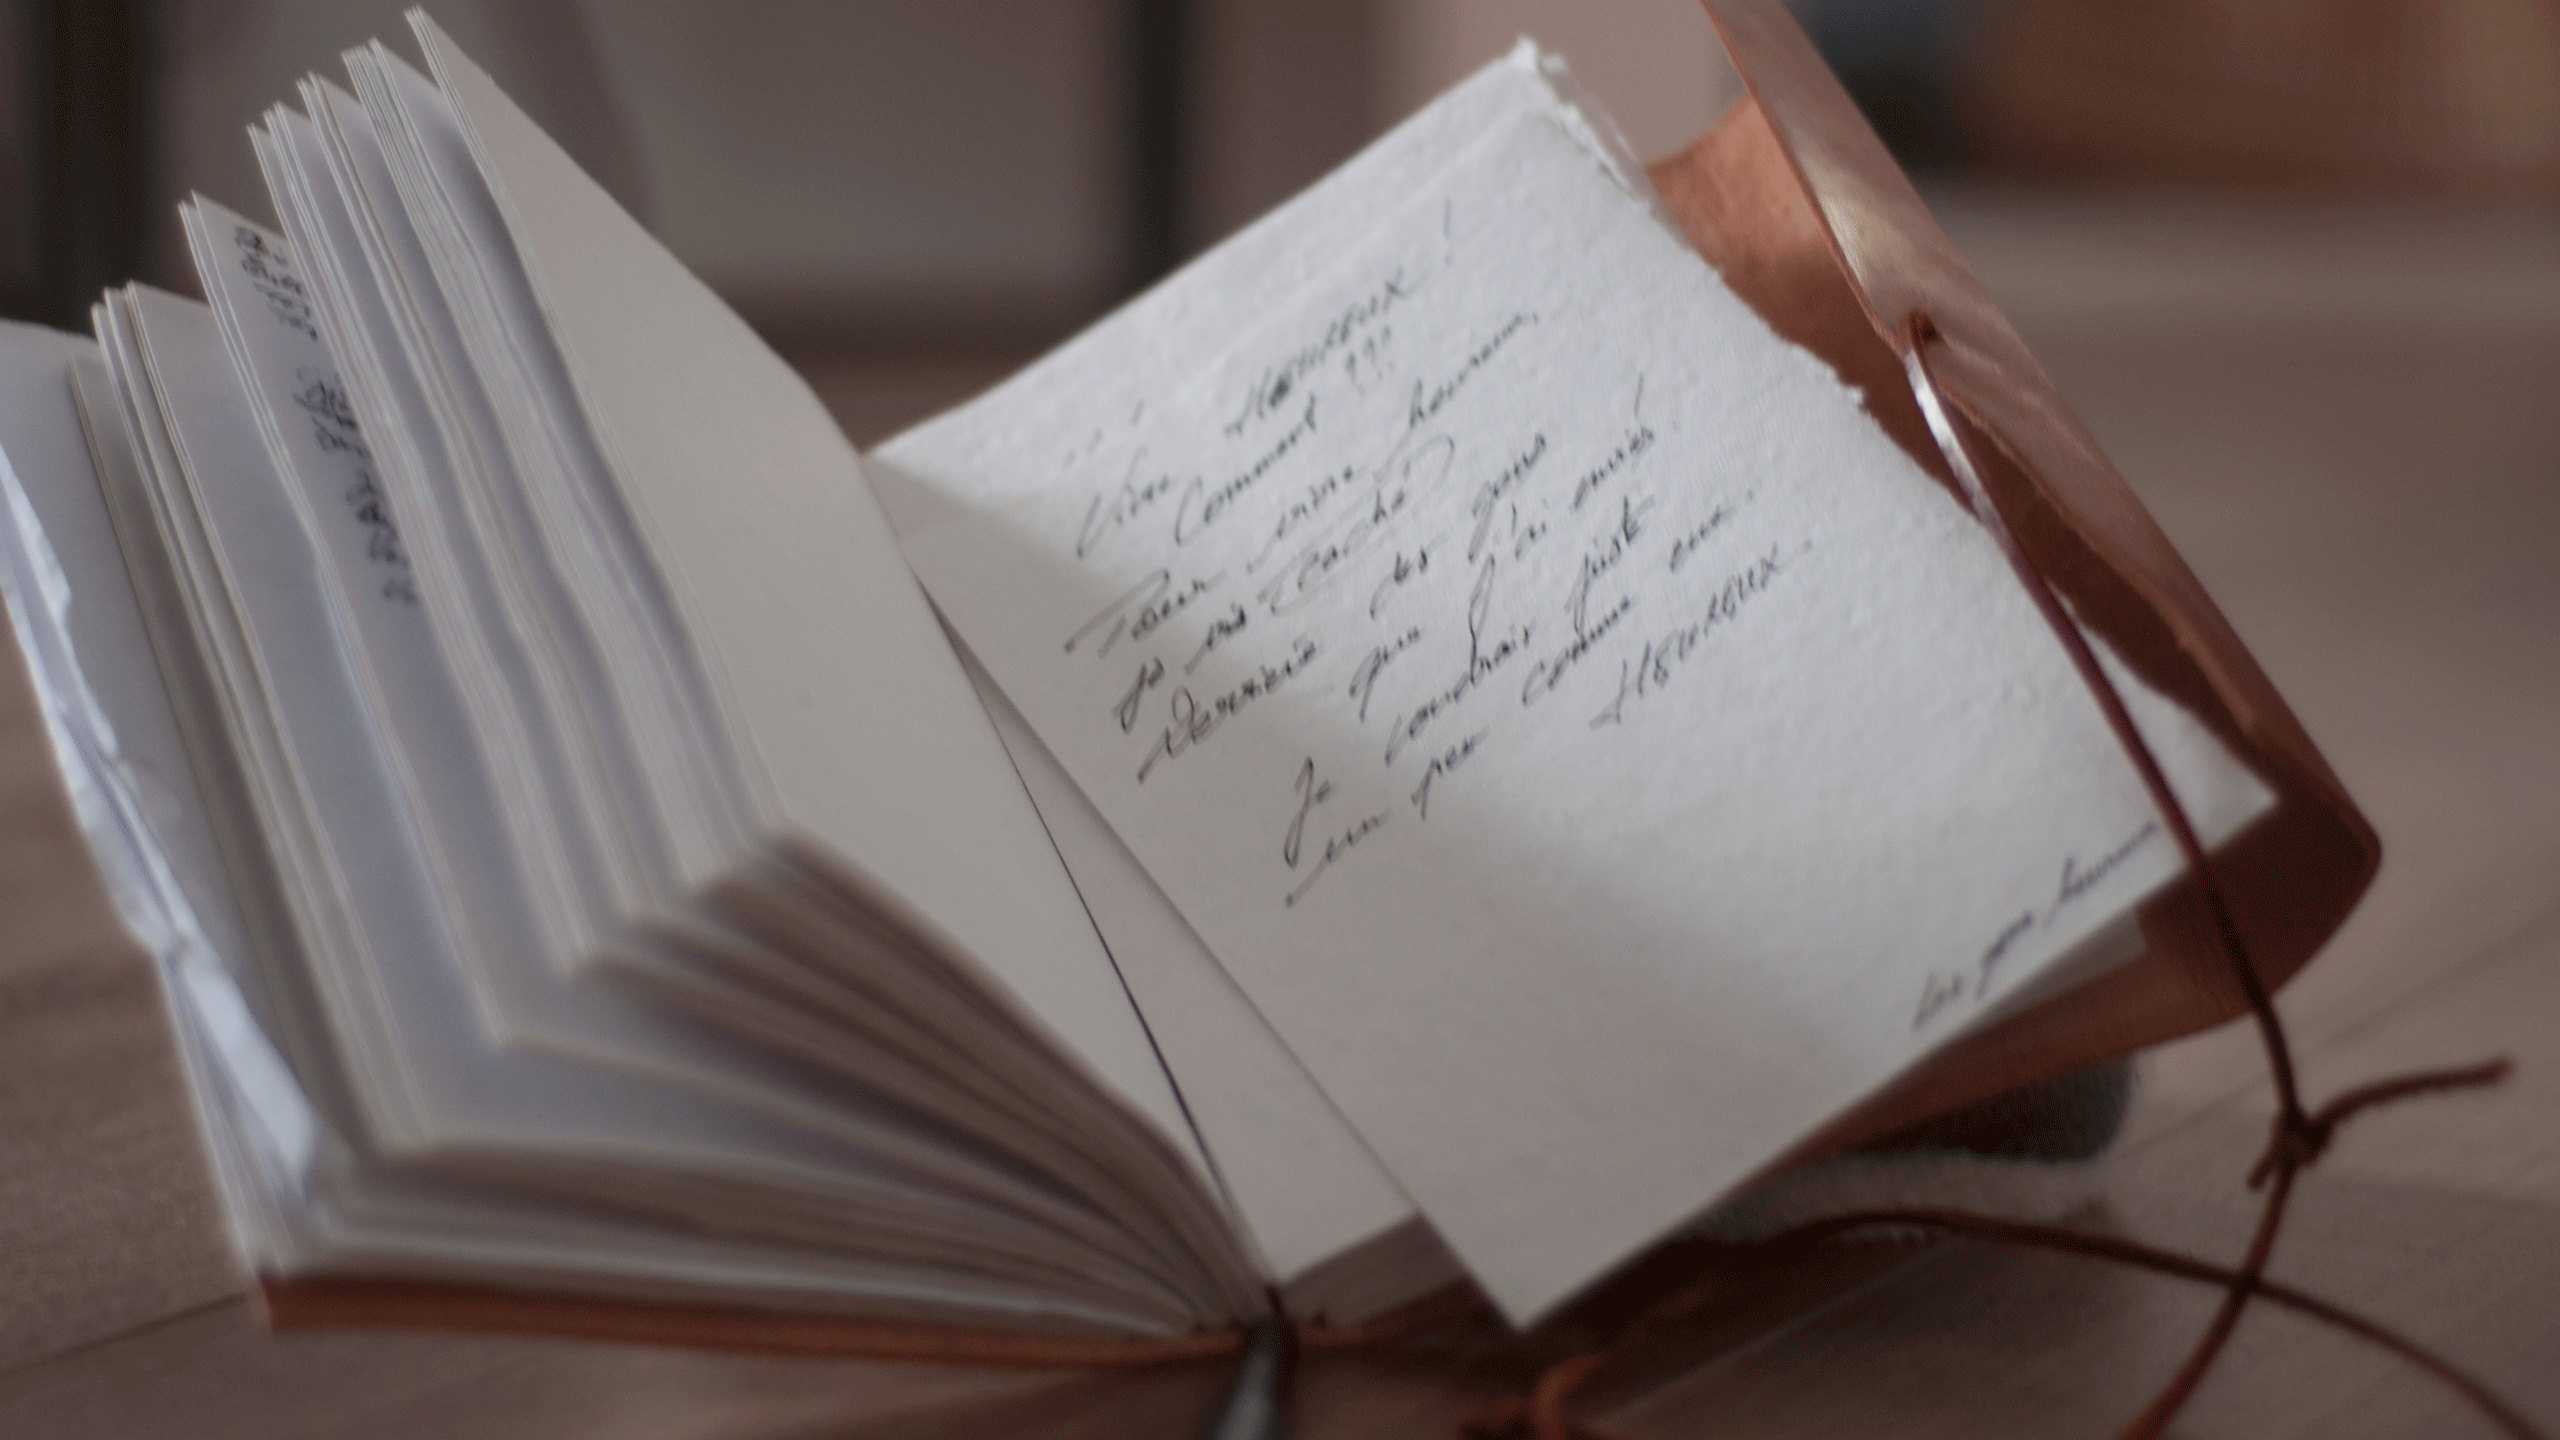 Vivre HEUREUX !
Comment ???
Pour vivre heureux,
je vis caché
Derrière des gens
que j'ai enviés !
Je voudrais juste
un peu comme eux.
HEUREUX.
Les gens heureux